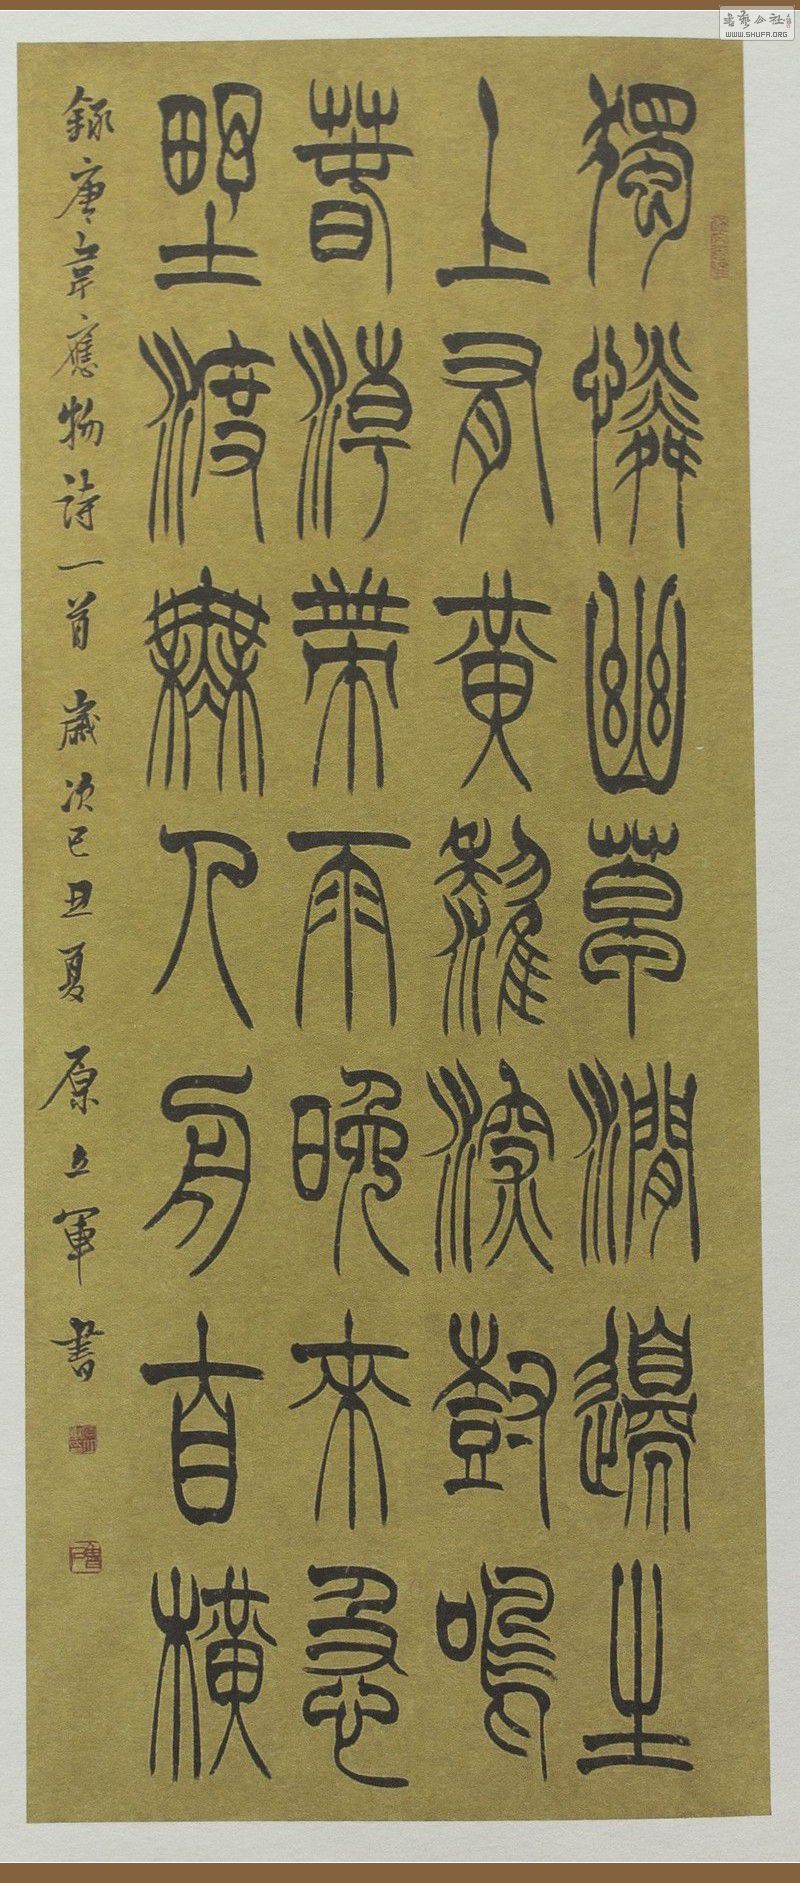 獨憐幽草澗邊生
上有黃鸝深樹鳴
春潮帶雨晚來急
野渡無人舟自橫
錄唐韋應物詩一首 歲次己丑夏 原立軍書
书艺公社
WWW.SHUFA.ORG